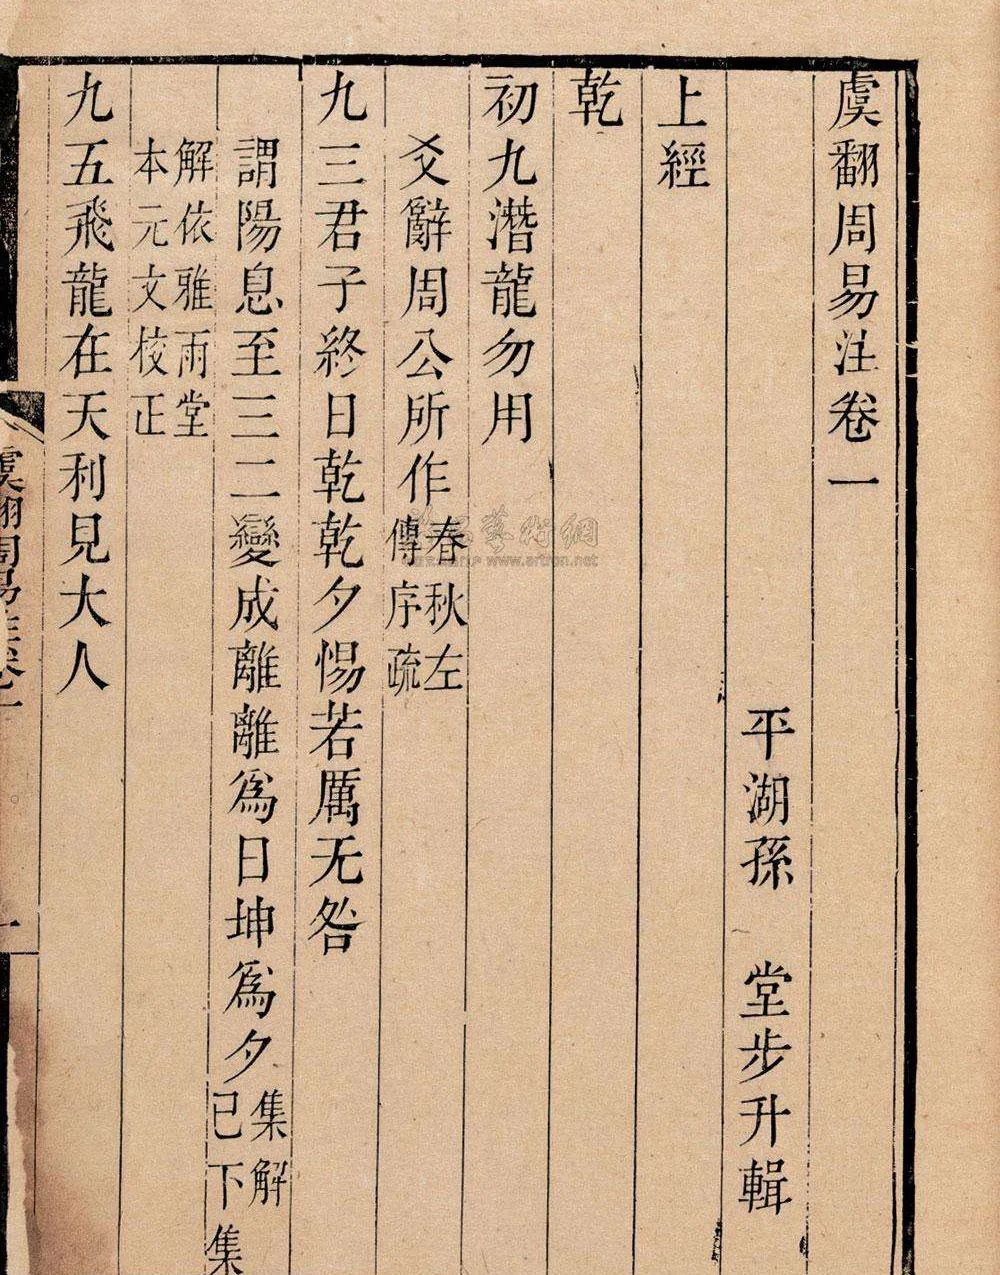 虞翻周易注卷一
平湖孫　堂步升輯
上經
乾
初九潛龍勿用
爻辭周公所作春秋左傳序疏
九三君子終日乾乾夕惕若厲无咎
謂陽息至三二變成離離爲日坤爲夕集解已下集
解依雅雨堂本元文校正
九五飛龍在天利見大人
虞翻周易注卷一
一
www.artron.net